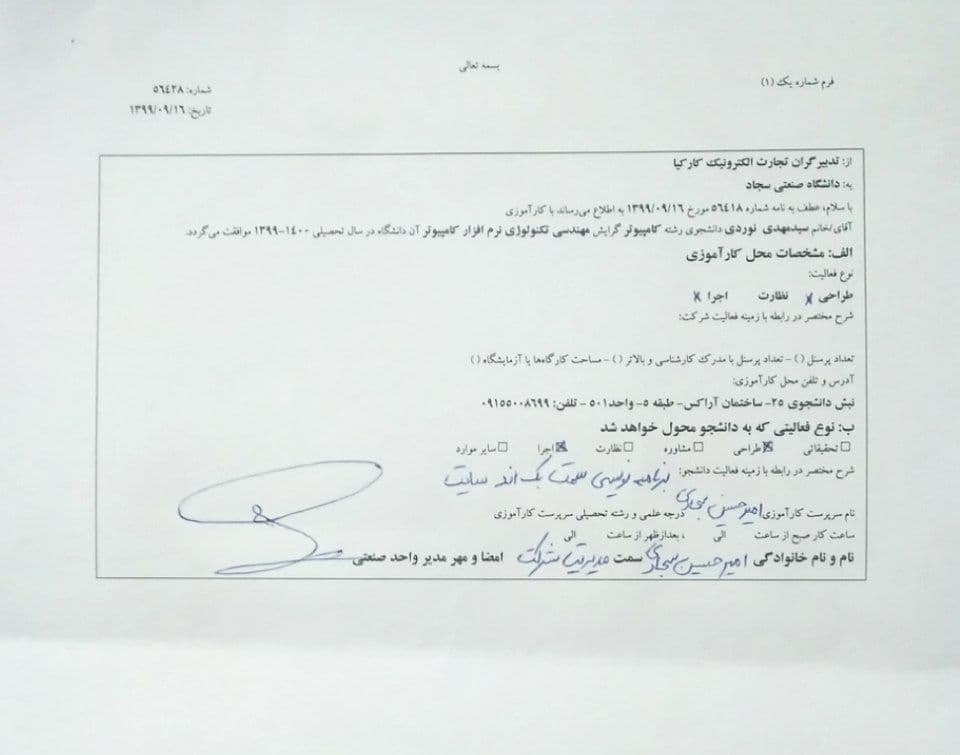 بسمه تعالی
فرم شماره یک (۱)
شماره: ۵۶۴۲۸
تاریخ: ۱۳۹۹/۰۹/۱۶
از: تدبیرگران تجارت الکترونیک کارکیا
به: دانشگاه صنعتی سجاد
با سلام، عطف به نامه شماره ۵۶۴۱۸ مورخ ۱۳۹۹/۰۹/۱۶ به اطلاع می‌رساند با کارآموزی
آقای/خانم سیدمهدی نوردی دانشجوی رشته کامپیوتر گرایش مهندسی تکنولوژی نرم افزار کامپیوتر آن دانشگاه در سال تحصیلی ۱۴۰۰-۱۳۹۹ موافقت می‌گردد.
الف: مشخصات محل کارآموزی
نوع فعالیت:
طراحی x نظارت اجرا x
شرح مختصر در رابطه با زمینه فعالیت شرکت:
تعداد پرسنل () - تعداد پرسنل با مدرک کارشناسی و بالاتر () - مساحت کارگاه‌ها یا آزمایشگاه ()
آدرس و تلفن محل کارآموزی:
نبش دانشجوی ۲۵- ساختمان آراکس- طبقه ۵- واحد۵۰۱ - تلفن: ۰۹۱۵۵۰۰۸۶۹۹
ب: نوع فعالیتی که به دانشجو محول خواهد شد
☐ تحقیقاتی ☒ طراحی ☐ مشاوره ☐ نظارت ☒ اجرا ☐ سایر موارد
شرح مختصر در رابطه با زمینه فعالیت دانشجو: برنامه نویسی سمت بک اند سایت
نام سرپرست کارآموزی امیرحسین درجه علمی و رشته تحصیلی سرپرست کارآموزی
ساعت کار صبح از ساعت الی ، بعدازظهر از ساعت الی
نام و نام خانوادگی امیرحسین سمت مدیریت شرکت امضا و مهر مدیر واحد صنعتی